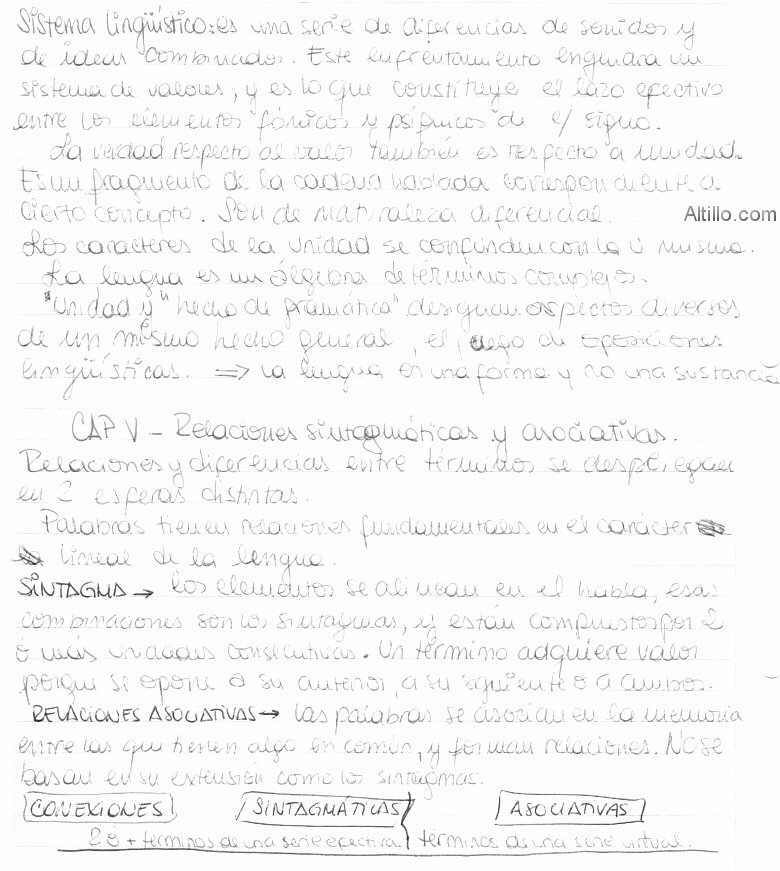 Sistema lingüístico: es una serie de diferencias de sonidos y
de ideas combinados. Este enfrentamiento engendra un
sistema de valores, y es lo que constituye el lazo efectivo
entre los elementos fónicos y psíquicos de c/ signo.
La verdad respecto al valor también es respecto a unidad.
Es un fragmento de la cadena hablada correspondiente a
cierto concepto. Son de naturaleza diferencial.
Altillo.com
Los caracteres de la unidad se confunden con la u misma.
La lengua es un álgebra de términos complejos.
"Unidad y" "hecho de gramática" designan aspectos diversos
de un mismo hecho general, el juego de oposiciones
lingüísticas. ⇒ la lengua es una forma y no una sustancia
CAP V - Relaciones sintagmáticas y asociativas.
Relaciones y diferencias entre términos se despliegan
en 2 esferas distintas.
Palabras tienen relaciones fundamentales en el carácter
lineal de la lengua.
SINTAGMA → los elementos se alinean en el habla, esas
combinaciones son los sintagmas, y están compuestos por 2
ó más unidades consecutivas. Un término adquiere valor
porque se opone a su anterior, a su siguiente o a ambos.
RELACIONES ASOCIATIVAS → las palabras se asocian en la memoria
entre las que tienen algo en común, y forman relaciones. No se
basan en su extensión como los sintagmas.
CONEXIONES SINTAGMÁTICAS ASOCIATIVAS
2 ó + términos de una serie efectiva. términos de una serie virtual.